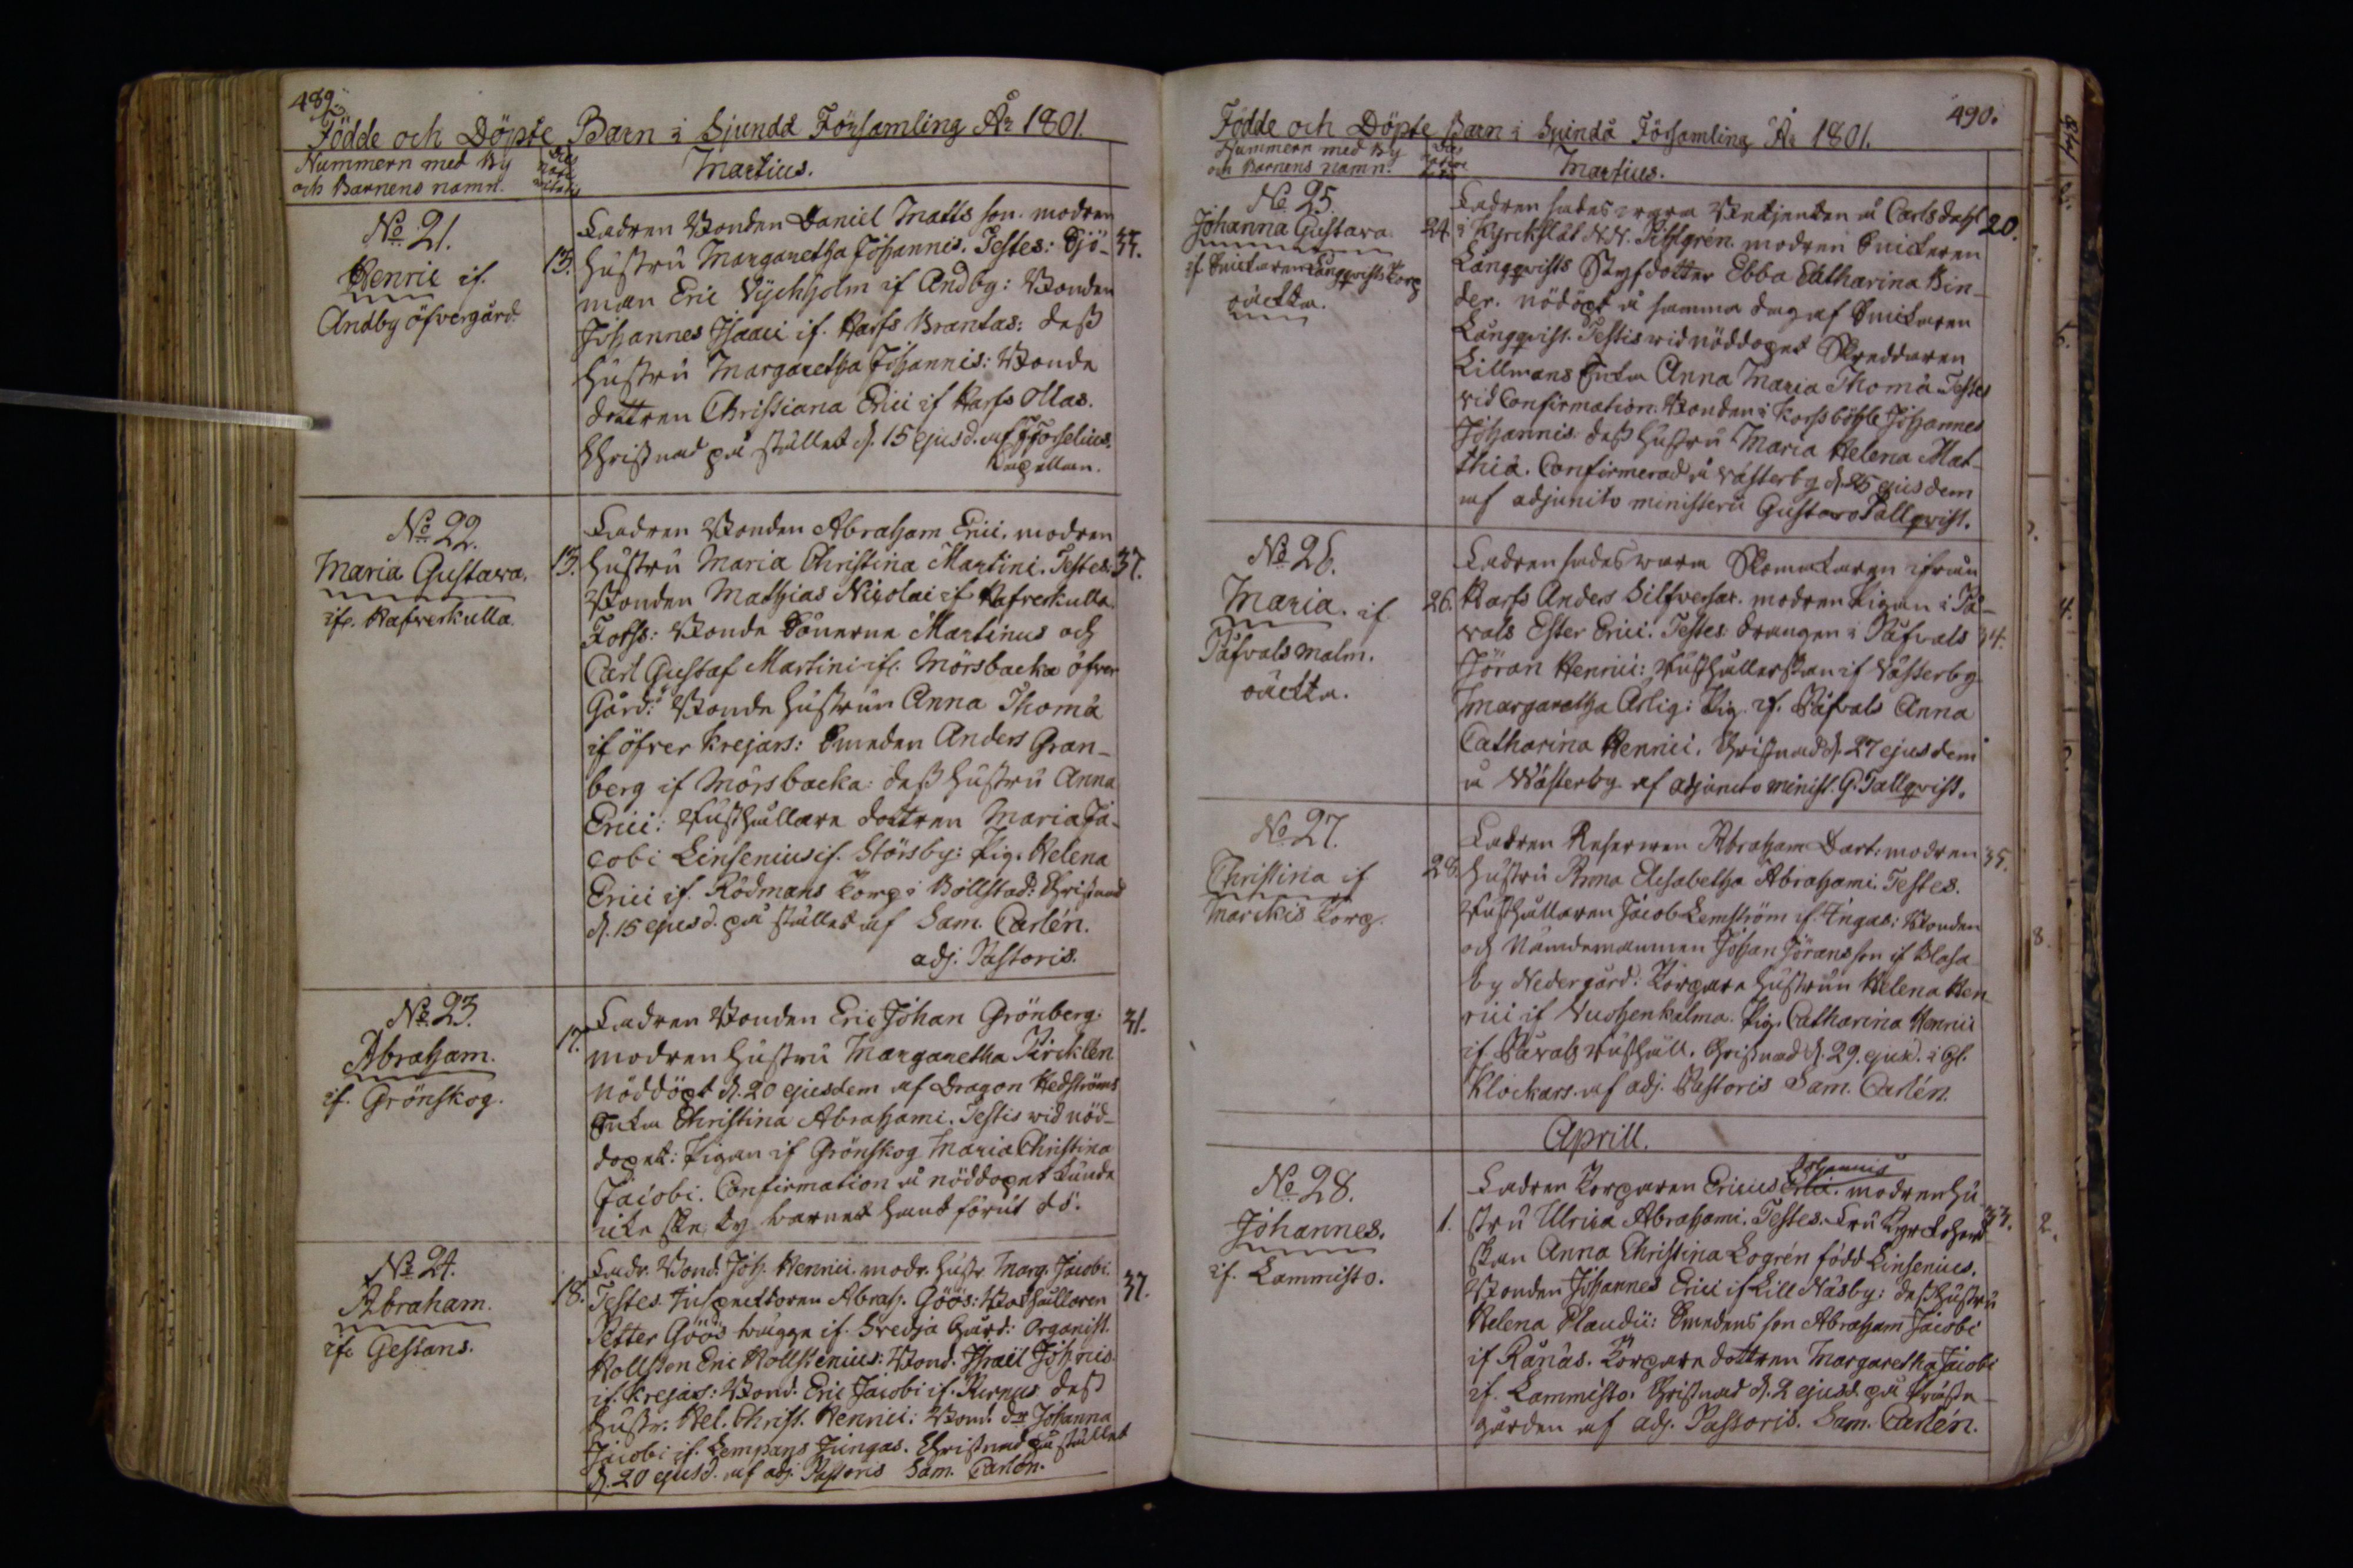 489.
Födde och Döpte Barn i Sjundå Församling År 1801.
Nummern med By
och Barnens namn.
Dies
Martius.
No 21.
Henric if.
Andby öfvergård.
13.
Fadren Bonden Daniel Matts son. modren
hustru Margaretha Johannis. Testes: Sjö-
man Eric Sjöholm if Andby: Bonden
Johannes Isaaci if. Karfs Brantas: dess
hustru Margaretha Johannis: Bonde
dottren Christiana Erici if Karfs Ollas.
Christnad på stället d. 15 ejusd. af Forselius.
Capellan.
No 22.
Maria Gustava.
if. Rafverkulla.
13.
Fadren Bonden Abraham Erici. modren
hustru Maria Christina Martini. Testes:
37.
Bonden Mathias Nicolai if Rafverkulla
Torss: Bonde Sönerne Martinus och
Carl Gustaf Martini if. Mörsbacka öfver
Gård: Bonde hustrun Anna Thomä
if öfver Krejars: Smeden Anders Gran-
berg if Mörsbacka: dess hustru Anna
Erici: Rusthållare dottren Maria Ja-
cobi Linsenius if. Störsby: Pig. Helena
Erici if. Rödmans Torp i Böllstad: Christnad
d. 15 ejusd. på stället af Sam. Carlén.
adj. Pastoris.
No 23.
Abraham.
if. Grönskog.
17.
Fadren Bonden Eric Johan Grönberg.
31.
modren hustru Margaretha Kircklén
Nöddöpt d. 20 ejusdem af Dragon Hedströms
Enka Christina Abrahami. Testis wid nöd-
dopet: Pigan if Grönskog Maria Christina
Jacobi. Confirmation å nöddopet kunde
icke ske, ty barnet hant förut dö.
No 24.
Abraham.
if. Gestans.
18.
Fadr. Bond. Joh. Henrici. modr. hustr. Marg. Jacobi.
37.
Testes. Inspectoren Abrah. Göös: Rusthållaren
Petter Göös bägge if. Svedja Gård: Organist.
Eric Rollstenius: Bond. Israel Johannis
if. Krejars: Bond. Eric Jacobi if. Pirnus dess
hustr. Hel. Christ. Henrici: Bond. dr Johanna
Jacobi if. Lempans Jungas. Christnad på stället
d. 20 ejusd. af adj. Pastoris Sam. Carlén.
490.
Födde och Döpte Barn i Sjundå Församling År 1801.
Nummern med By
och Barnens namn.
Dies
Martius.
No 25.
Johanna Gustava
if. Snickaren Långqvists Torp
oäckta.
24.
Fadren sades vara Betjenten å Carlsdahl
20.
i Kyrkslät N.N. modren Snickaren
Långqvists Styfdotter Ebba Catharina Bin-
der. nödöpt å samma dag af Snickaren
Långqvist. Testis wid nöddopet Skreddaren
Lillmans Enka Anna Maria Thomä Testes
vid Confirmation: Bonden i Korsböhle Johannes
Johannis. dess hustru Maria Helena Mat-
thiä. Confirmerad å Västerby d. 25 ejusdem
af adjuncto ministerii Gustavo Tallqvist.
No 26.
Maria. if.
Påfvals malm.
oäckta.
26.
Fadren sades wara Skomakaren ifrån
Karfs Anders Silfversar. modren Pigan i På-
vals Ester Erici. Testes: drängen i Påfvals
34.
Jöran Henrici: Hushållerskan if Västerby
Margaretha Arlig: Pig. if. Påfvals Anna
Catharina Henrici. Christnad d. 27 ejusdem
å Wästerby af adjuncto minist. G. Tallqvist.
No 27.
Christina if
Marckis Torp.
28.
Fadren Reserven Abraham Dart. modren
35.
hustru Anna Elisabetha Abrahami. Testes.
Rusthållaren Jacob Lemström if. Ingas: Bonden
och Nämdemannen Johan Jöransson if Blasa-
by Nedergård. Torpare hustrun Helena Hen-
rici if Suohenkalma. Pig. Catharina Henrici
if. Påvals Rusthåll. Christnad d. 29. ejusd. i Gl.
Klockars. af adj. Pastoris Sam. Carlén.
Aprill.
No 28.
Johannes.
if. Lammisto.
1.
Johannis
Fadren Torparen Ericus Erici. modren hu
stru Ulrica Abrahami. Testes. Fru Kyrckoherd-
33.
skan Anna Christina Logrén född Linsenius.
Bonden Johannes Erici if Lill Näsby: dess hustru
Helena Claudii: Smedens son Abraham Jacobi
if Rånäs. Torpare dottren Margaretha Jacobi
if. Lammisto. Christnad d. 2 ejusd. på Präste-
gården af adj. Pastoris. Sam. Carlén.